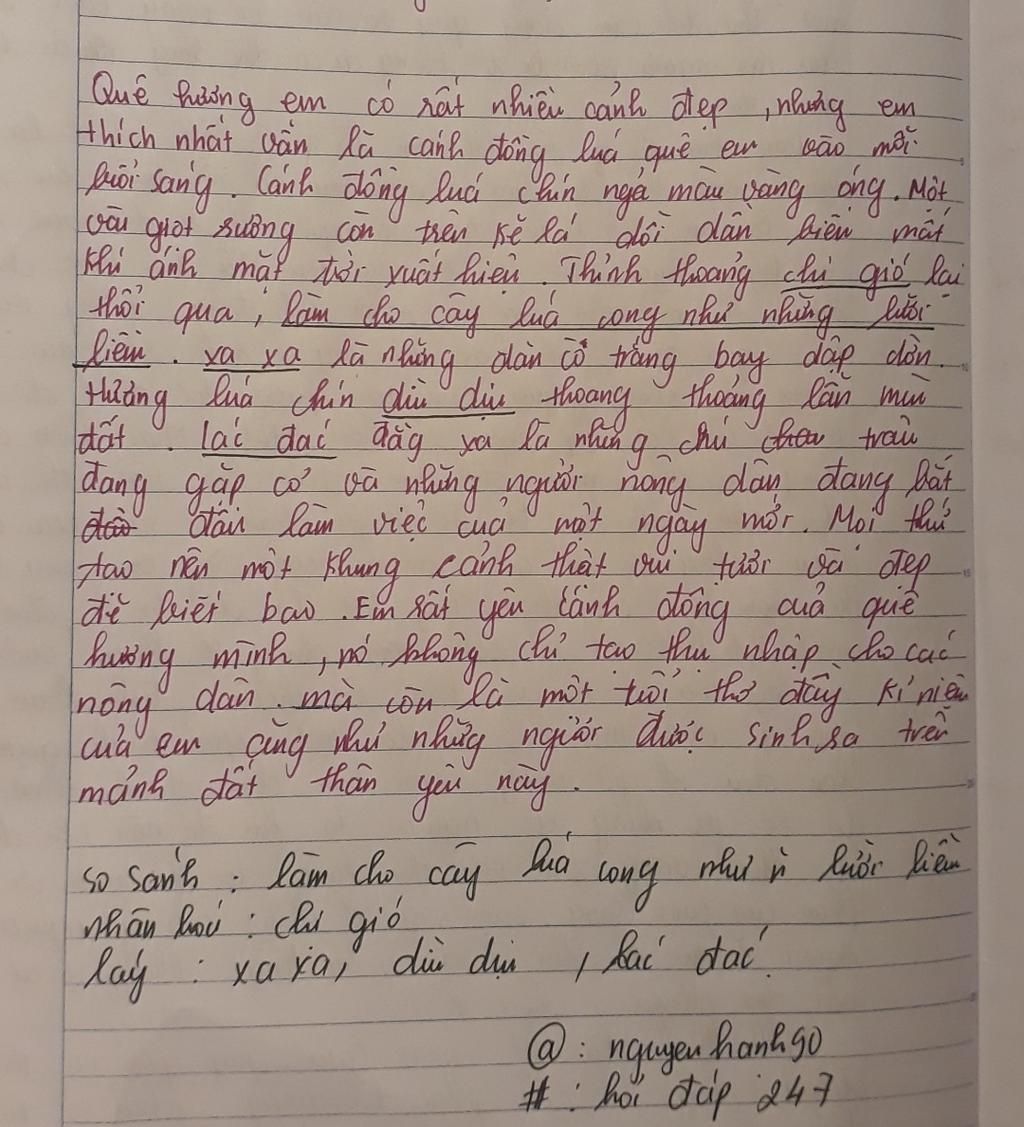 Quê hương em có rất nhiều cảnh đẹp, nhưng em
thích nhất vẫn là cánh đồng luá quê em vào mỗi
buổi sáng. Cánh đồng luá chín ngả màu vàng óng. Một
vài giọt sương còn trên kẽ lá dồi dần biến mất
khi ánh mặt trời xuất hiện. Thỉnh thoảng chị gió lại
thổi qua, làm cho cây luá cong như những lưỡi
liềm. xa xa là những đàn cò trắng bay dập dờn.
Hương luá chín dìu dịu thoang thoảng lẫn mùi
đất. lác đác đằg xa là những chú trâu
đang gặp cỏ và những người nông dân đang bắt
đầu làm việc cuả một ngày mới. Mọi thứ
tạo nên một khung cảnh thật vui tươi và đẹp
đẽ biết bao. Em rất yêu cánh đồng cuả quê
hương mình, nó không chỉ tạo thu nhập cho các
nông dân mà còn là một tuổi thơ đầy kỉ niệm
cuả em cũng như nhữg người được sinh ra trên
mảnh đất thân yêu này.
so sánh : làm cho cây luá cong như ~ lưỡi liềm
nhân hoá : chị gió
láy : xa xa, dìu dịu, lác đác.
@ : nguyenhanh90
# : hỏi đáp 247